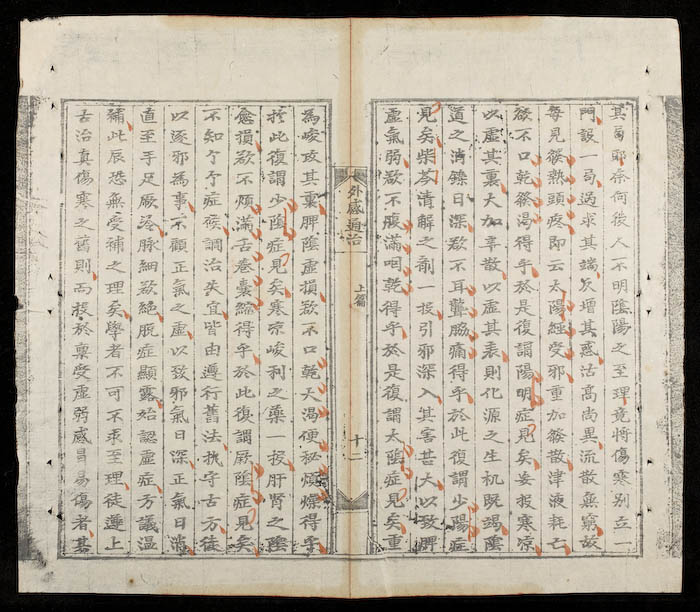 其局耶奈何後人不明陰陽之至理竟將傷寒别立一
門設一局過求其端反增其惑沽高尚異流散無窮故
每見發熱頭疼即云太陽經受邪重加發散津液耗亡
欲不口乾發渴得乎於是復謂陽明症見矣妄投寒凉
以虛其裏大加辛散以虛其表則化源之生机既竭陰
道之消鑠日深欲不耳聾脇痛得乎於此復謂少陽症
見矣柴芩清解之劑一投引邪深入其害甚大以致脾
虛氣弱欲不腹滿咽乾得乎於是復謂太陰症見矣重
外感通治
上篇
十二
為峻攻其裏脾陰虛損欲不口乾大渴便秘煩燥得乎
於此復謂少陰症見矣寒凉峻利之藥一投肝腎之陰
愈損欲不煩滿舌卷囊縮得乎於此復謂厥陰症見矣
不知兮兮症候調治失宜皆由遵行舊法執守古方徒
以逐邪為事不顧正氣之虛以致邪氣日深正氣日消
直至手足厥冷脉細欲絶脫症顯露始認虛症方議温
補此辰恐無受補之理矣學者不可不求至理徒遵上
古治真傷寒之舊則而投於禀受虛弱感冒易傷者甚